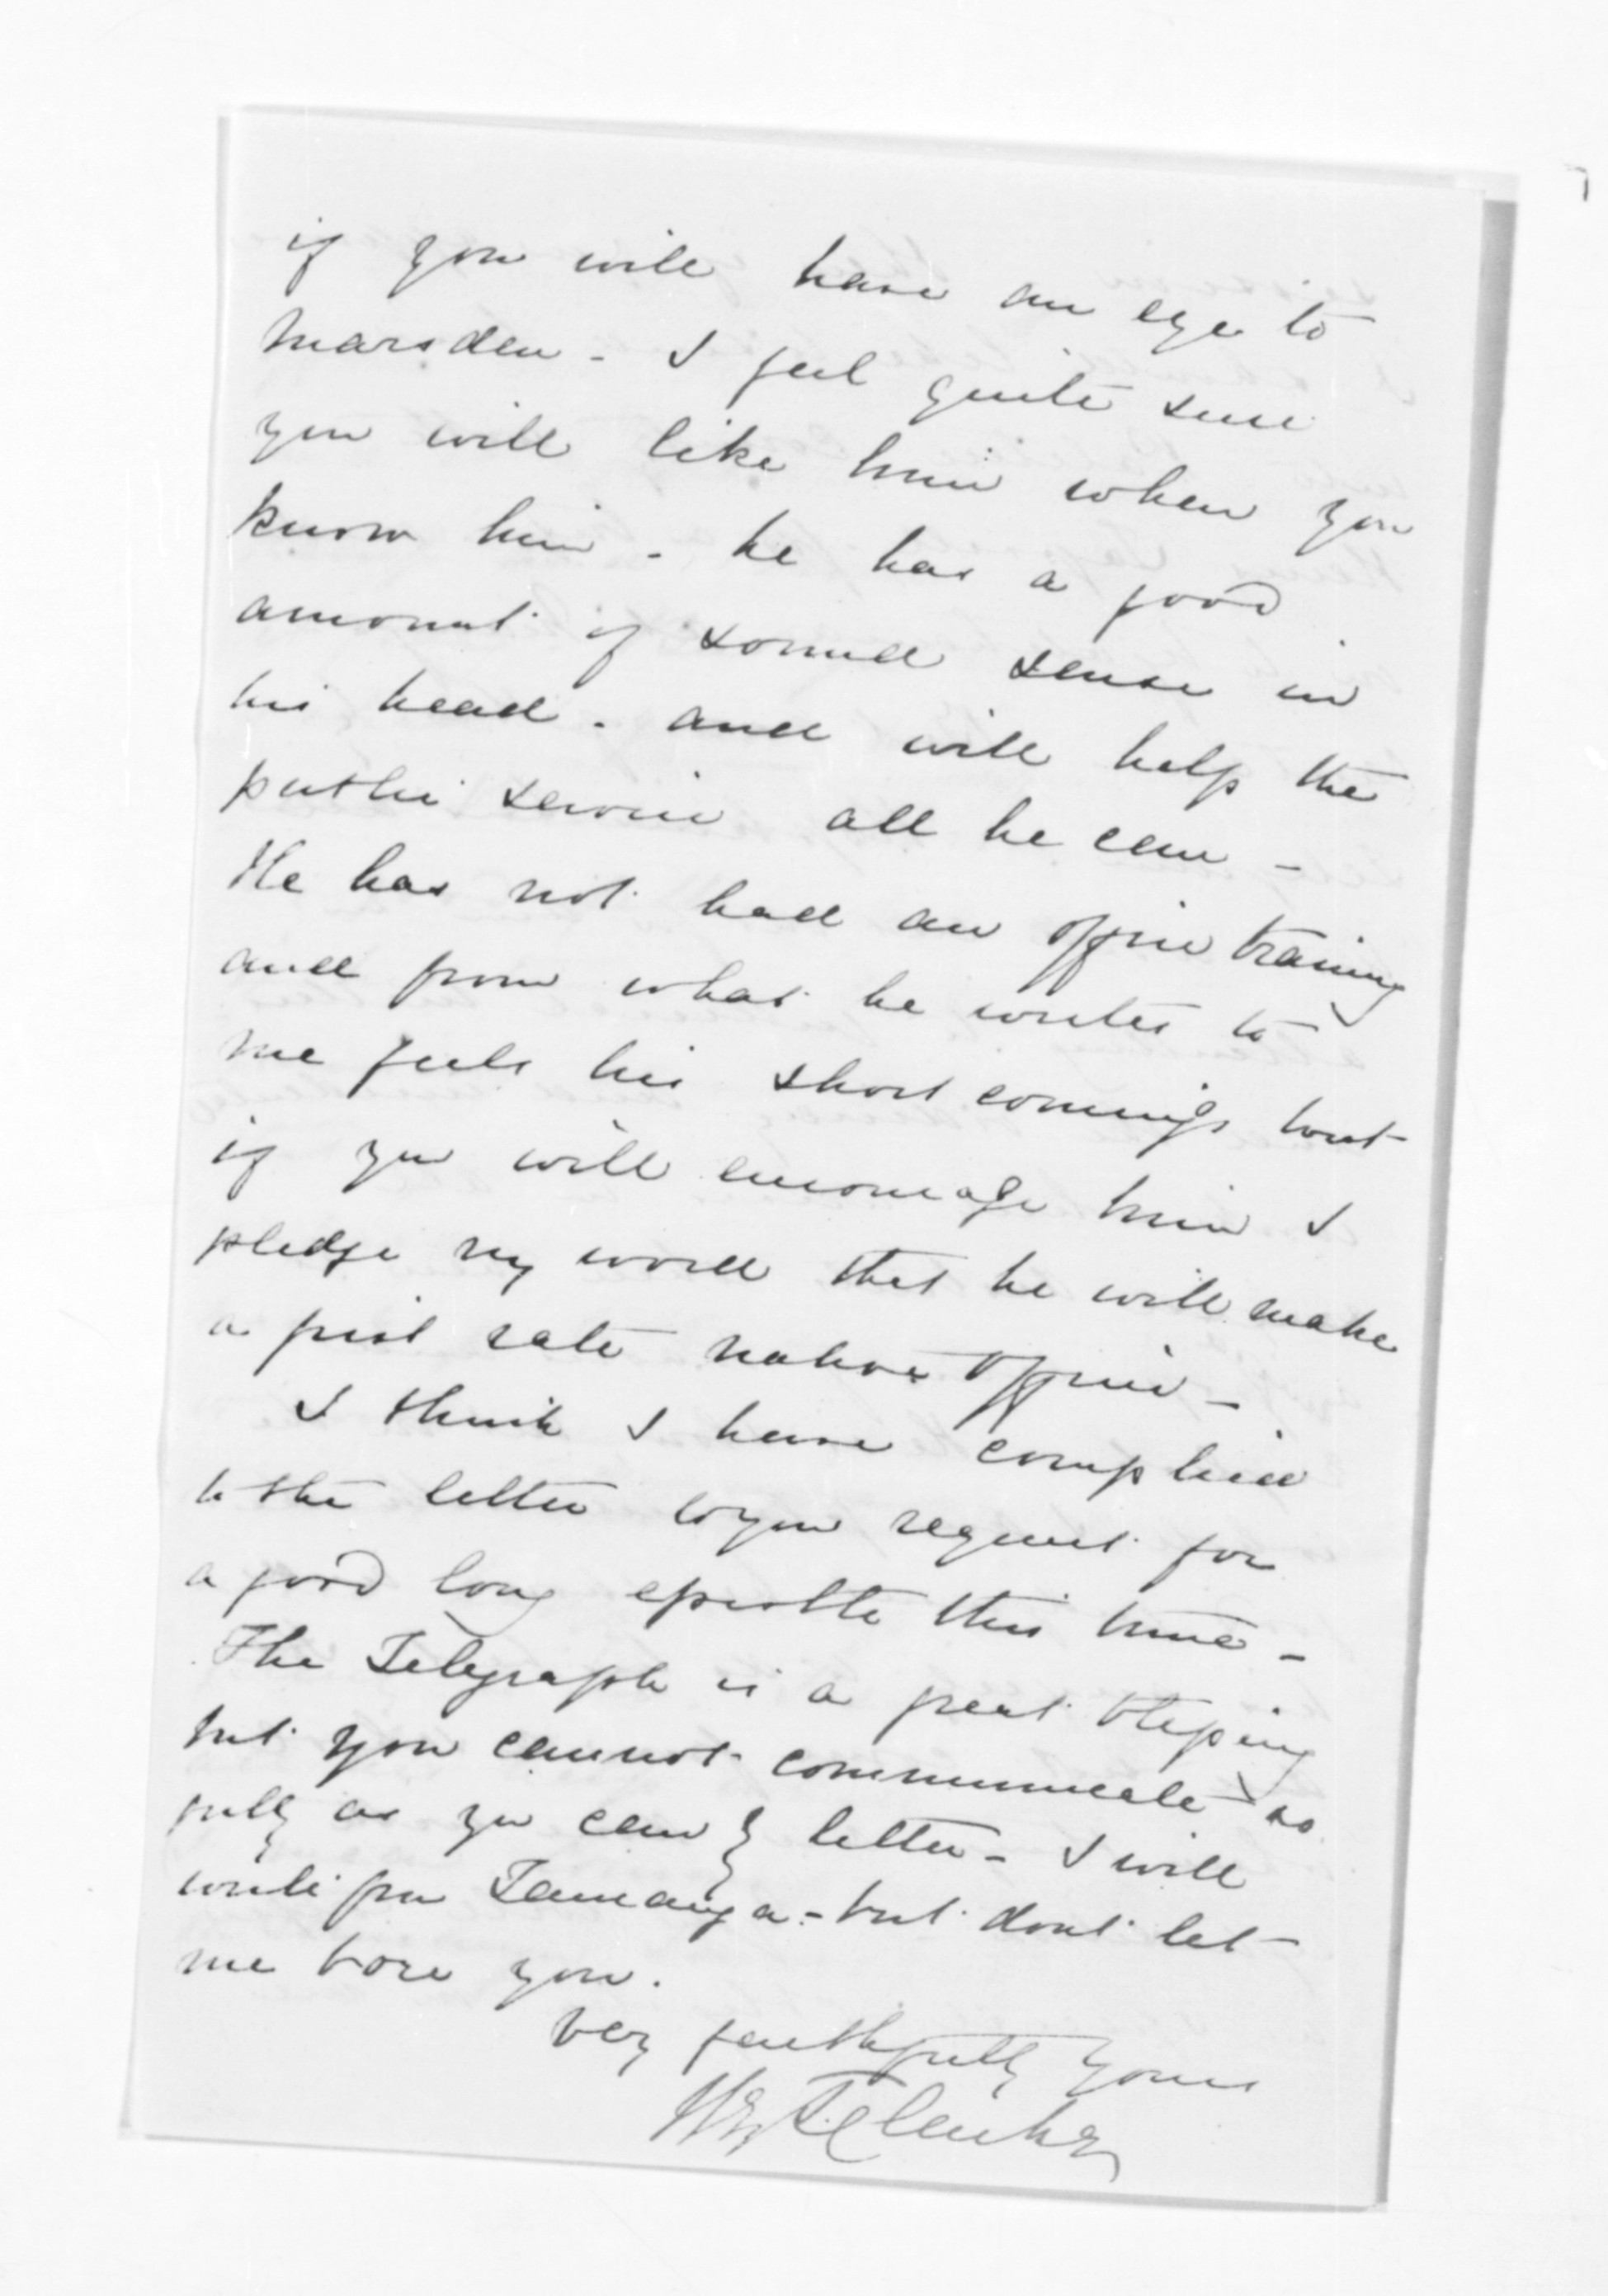 if you will have an eye to
Marsden - I feel quite sure
you will like him when you
know him - he has a good
amount of sound sense in
his head - and will help the
public service all he can -
He has not had an office training
and from what he writes to
me feels his short comings but
if you will encourage him I
pledge my word that he will make
a first rate native officer -
I think I have complied
to the letter to your request for
a good long epistle this time -
The Telegraph is a great thing
but you cannot communicate so
fully as you can by letter - I will
write from Tauranga - but dont let
me bore you.
Very faithfully yours
H T Clarke